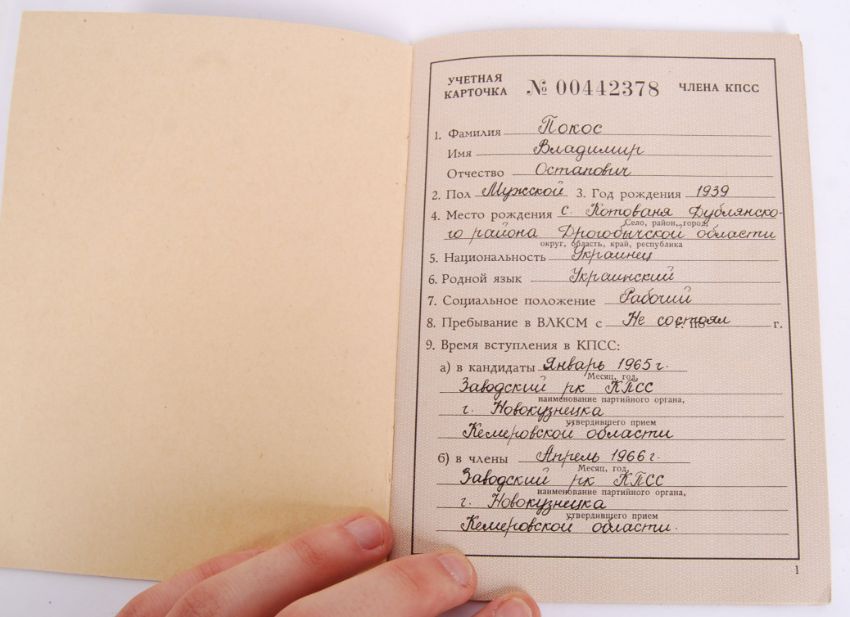 УЧЕТНАЯ КАРТОЧКА № 00442378 ЧЛЕНА КПСС
1. Фамилия Покос
Имя Владимир
Отчество Остапович
2. Пол Мужской 3. Год рождения 1939
4. Место рождения с. Котованя Дублянско-
Село, район, город,
го района Дрогобычской области
округ, область, край, республика
5. Национальность Украинец
6. Родной язык Украинский
7. Социальное положение Рабочий
8. Пребывание в ВЛКСМ с Не состоял г. по г.
9. Время вступления в КПСС:
а) в кандидаты Январь 1965 г.
Месяц, год,
Заводский рк КПСС
наименование партийного органа,
г. Новокузнецка
утвердившего прием
Кемеровской области
б) в члены Апрель 1966 г.
Месяц, год,
Заводский рк КПСС
наименование партийного органа,
г. Новокузнецка
утвердившего прием
Кемеровской области.
1